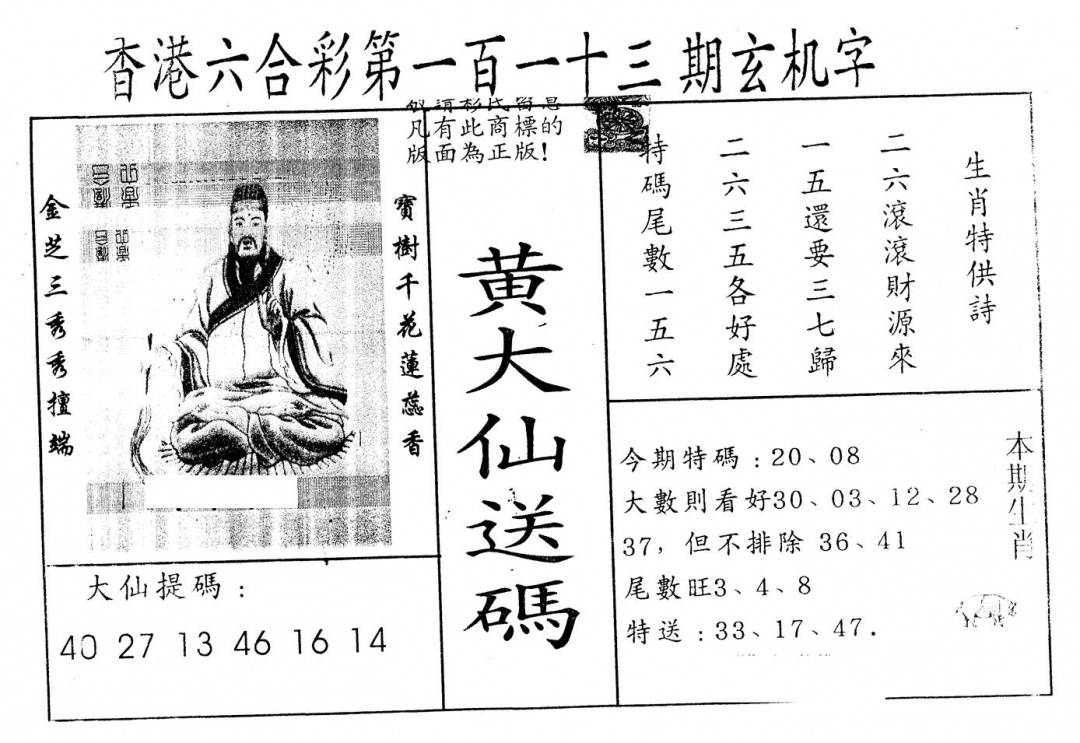 香港六合彩第一百一十三期玄机字
凡有此商標的
版面為正版!
寶樹千花蓮蕊香
金芝三秀秀擅端
大仙提碼:
40 27 13 46 16 14
黄大仙送碼
生肖特供詩
二六滾滾財源來
一五還要三七歸
二六三五各好處
特碼尾數一五六
今期特碼:20、08
大數則看好30、03、12、28
37,但不排除 36、41
尾數旺3、4、8
特送:33、17、47.
本期生肖